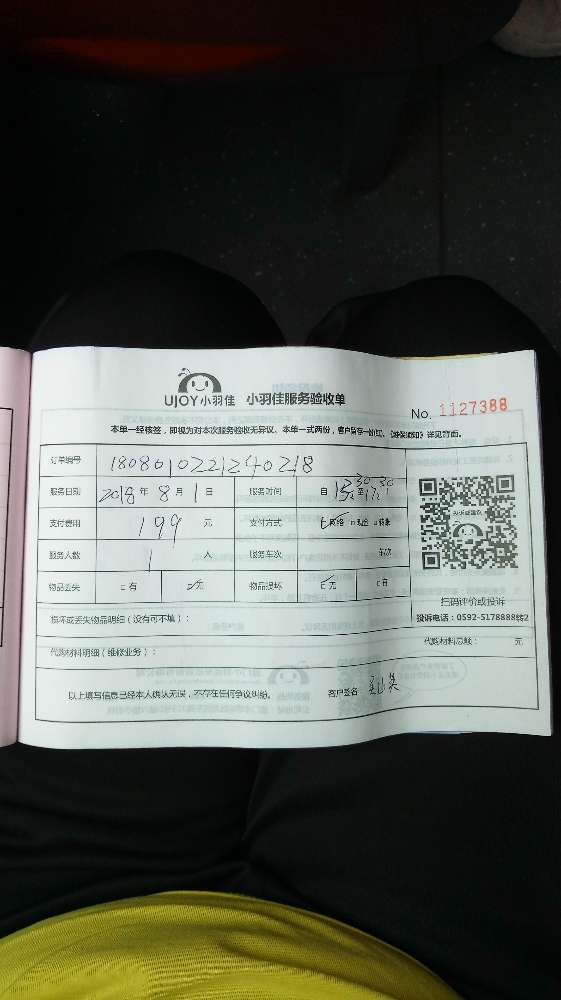 UJOY小羽佳 小羽佳服务验收单
No. 1127388
本单一经核签，即视为对本次服务验收无异议、本单一式两份，客户留存一份(红)，《维保须知》详见背面。
订单编号 1808010221240218
服务日期 2018年 8月 1日 服务时间 自 13:30 至 17:30
支付费用 199 元 支付方式 网络 现金 转账
服务人数 1 人 服务车次 车次
物品丢失 有 无 物品损坏 无 有
扫码评价或投诉
投诉电话：0592-5178888转2
损坏或丢失物品明细（没有可不填）：
代购材料明细（维修业务）： 代购材料总额： 元
以上填写信息已经本人确认无误，不存在任何争议纠纷。 客户签名